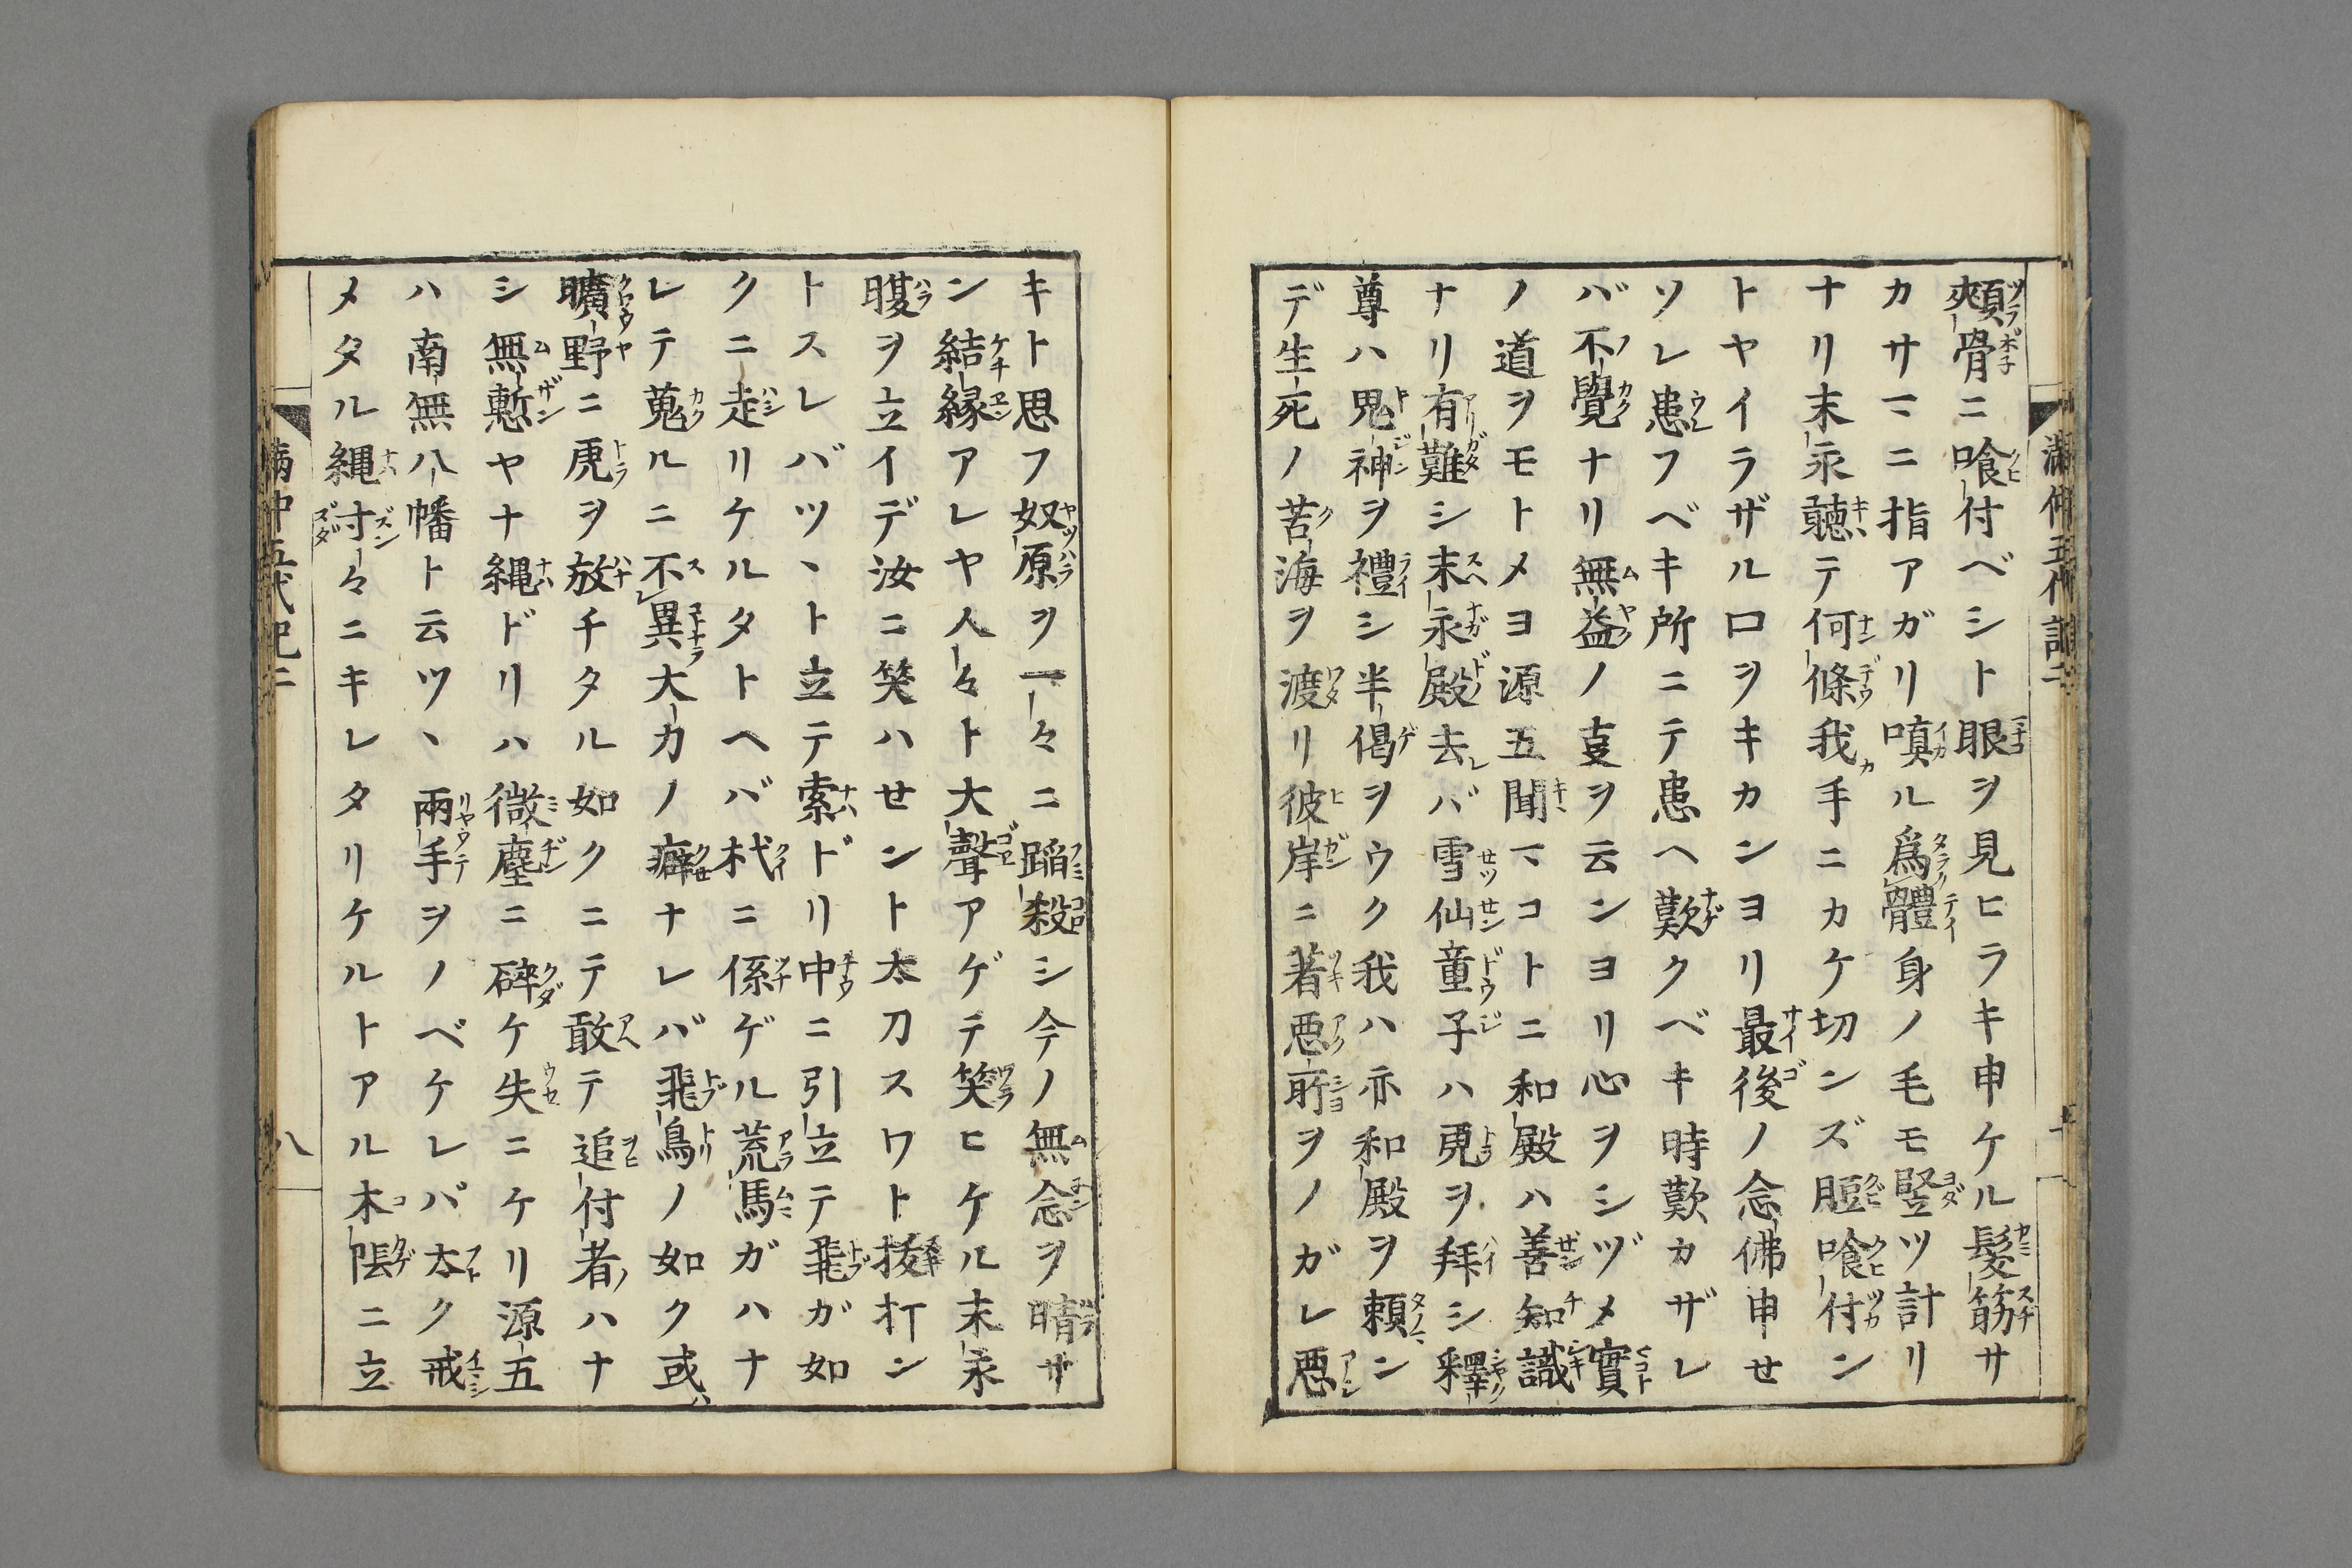 頰骨ニ喰付ベシト眼ヲ見ヒラキ申ケル髮筋サ
カサマニ指アガリ嗔ル爲體身ノ毛モ竪ツ計リ
ナリ末永聽テ何條我手ニカケ切ンズ脰喰付ン
トヤイラザル口ヲキカンヨリ最後ノ念佛申せ
ソレ患フベキ所ニテ患ヘ歎クベキ時歎カザレ
バ不覺ナリ無益ノ㕝ヲ云ンヨリ心ヲシヅメ實
ノ道ヲモトメヨ源五聞マコトニ和殿ハ善知識
ナリ有難シ末永殿去バ雪仙童子ハ虎ヲ拜シ釋
尊ハ鬼神ヲ禮シ半偈ヲウク我ハ亦和殿ヲ頼ン
デ生死ノ苦海ヲ渡リ彼岸ニ著悪所ヲノガレ悪
キト思フ奴原ヲ一々ニ蹈殺シ今ノ無念ヲ晴サ
ン結縁アレヤ人々ト大聲アゲテ笑ヒケル末永
腹ヲ立イデ汝ニ笑ハせント太刀スワト拔打ン
トスレバツヽト立テ索ドリ中ニ引立テ飛ガ如
クニ走リケルタトヘバ杙ニ係ゲル荒馬ガハナ
レテ蒐ルニ不異大力ノ癖ナレバ飛鳥ノ如ク或ハ
曠野ニ虎ヲ放チタル如クニテ敢テ追付者ハナ
シ無慙ヤナ縄ドリハ微塵ニ碎ケ失ニケリ源五
ハ南無八幡ト云ツヽ兩手ヲノベケレバ太ク戒
メタル縄寸々ニキレタリケルトアル木陰ニ立
満仲五代記二
八